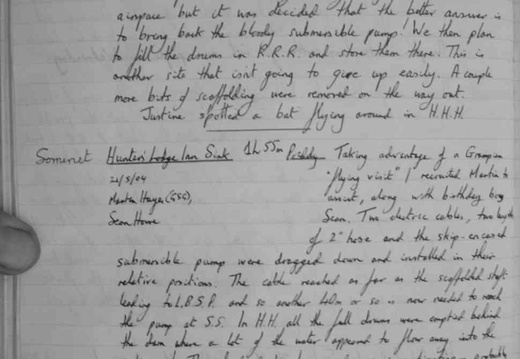 airspace but it was decided that the better answer is
to bring back the bloody submersible pump. We then plan
to fill the drums in R.R.R. and store them there. This is
another site that isn't going to give up easily. A couple
more bits of scaffolding were removed on the way out.
Justine spotted a bat flying around in H.H.H.
Somerset Hunters' Lodge Inn Sink 1h 55m Priddy Taking advantage of a Grampian
21/5/04 "flying visit" I recruited Martin to
Martin Hayes(GSS), assist, along with birthday boy
Sean Howe Sean. Two electric cables, two lengths
of 2" hose and the skip-encased
submersible pump were dragged down and installed in their
relative positions. The cable reached as far as the scaffolded shaft
leading to L.B.S.P. and so another 40m or so is now needed to reach
the pump at S.S. In H.H. all the full drums were emptied behind
the dam where a lot of the water appeared to flow away into the